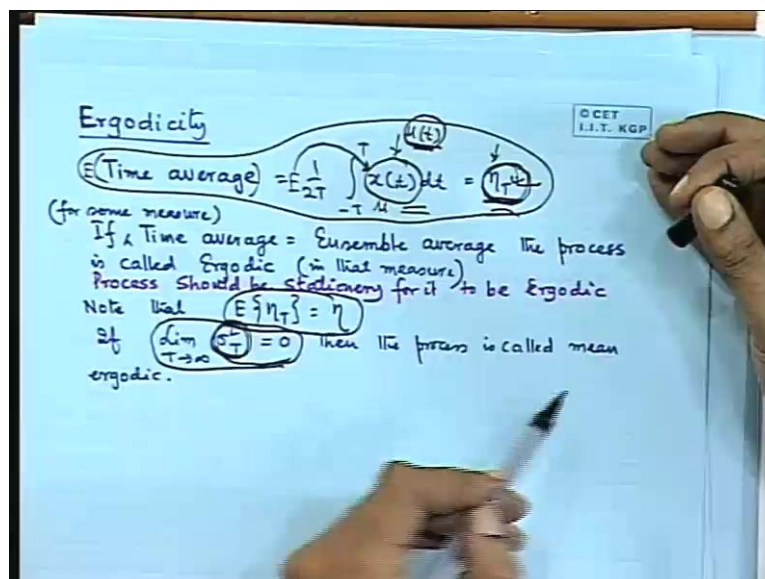 Ergodicity
© CET
I.I.T. KGP
μ(t)
E(Time average) = E 1/2T ∫_{-T}^{T} x(t) dt = η_T
μ
(for some measure)
If ʌ Time average = Ensemble average the process
is called Ergodic (in that measure)
Process should be stationery for it to be Ergodic
Note that E{η_T} = η
If lim_{T→∞} σ²_T = 0 then the process is called mean
ergodic.